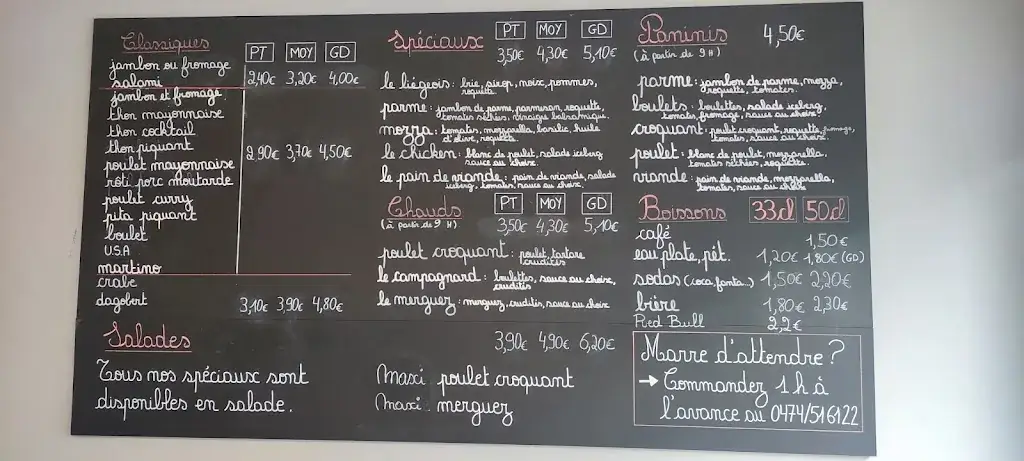 Classiques
PT MOY GD
jambon ou fromage
salami 2,40€ 3,20€ 4,00€
jambon et fromage
thon mayonnaise
thon cocktail
thon piquant
poulet mayonnaise 2,90€ 3,70€ 4,50€
rôti porc moutarde
poulet curry
pita piquant
boulet
U.S.A
martino
crabe
dagobert 3,10€ 3,90€ 4,80€
Salades
Tous nos spéciaux sont
disponibles en salade.
Spéciaux PT MOY GD
3,50€ 4,30€ 5,10€
le liégeois: brie, sirop, noix, pommes,
roquette.
parme: jambon de parme, parmesan, roquette,
tomates séchées, vinaigre balsamique.
mozza: tomates, mozzarella, basilic, huile
d'olive, roquette.
le chicken: blanc de poulet, salade iceberg
sauce au choix.
le pain de viande: pain de viande, salade
iceberg, tomates, sauce au choix.
Chauds PT MOY GD
(à partir de 9H) 3,50€ 4,30€ 5,10€
poulet croquant: poulet, tartare
crudités
le campagnard: boulettes, sauce au choix,
crudités
le merguez: merguez, crudités, sauce au choix
3,90€ 4,90€ 6,20€
Maxi poulet croquant
Maxi merguez
Paninis 4,50€
(à partir de 9H)
parme: jambon de parme, mozza,
roquette, tomates.
boulets: boulettes, salade iceberg,
tomates, fromage, sauce au choix.
croquant: poulet croquant, roquette, fromage,
tomates, sauce au choix.
poulet: blanc de poulet, mozzarella,
tomates séchées, roquette.
viande: pain de viande, mozzarella,
tomates, sauce au choix
Boissons 33cl 50cl
café 1,50€
eau plate, pét. 1,20€ 1,80€ (GD)
sodas (coca, fanta..) 1,50€ 2,20€
bière 1,80€ 2,30€
Red Bull 2,2€
Marre d'attendre ?
→ Commandez 1h à
l'avance au 0474/516122